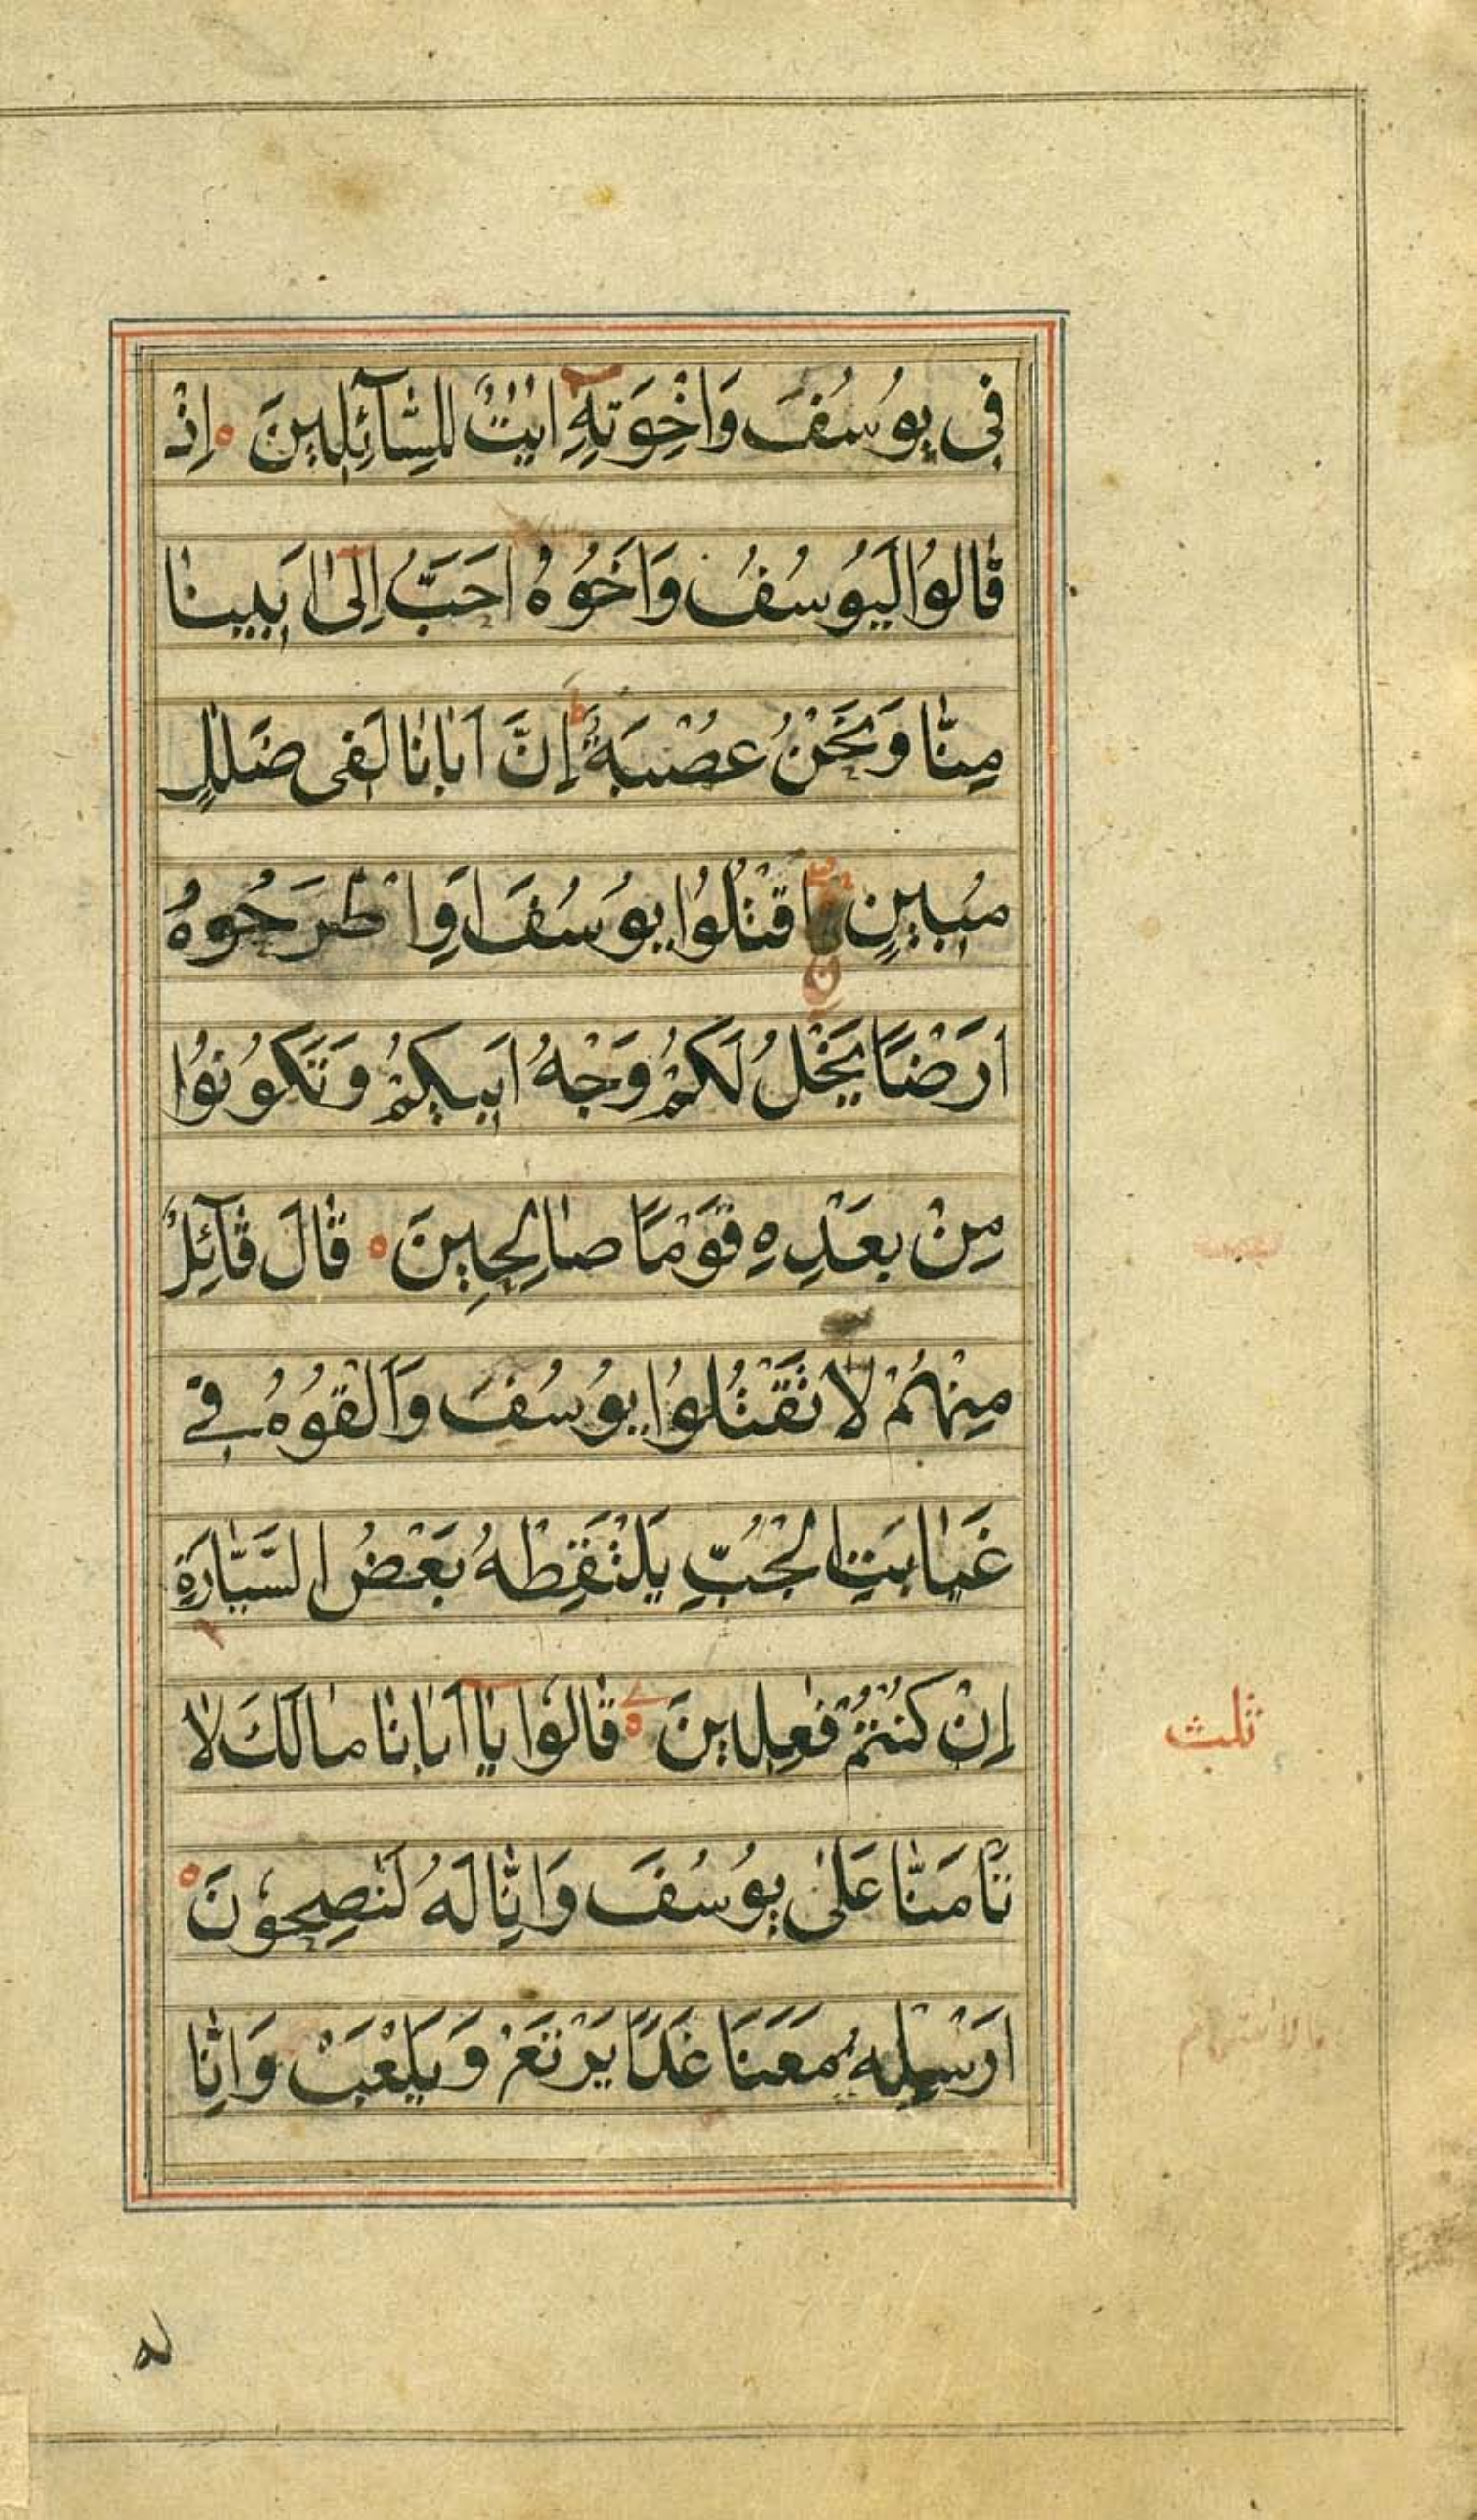 فِى يُوسُفَ وَاِخْوَتِهٖٓ اٰيٰتٌ لِلسَّآئِلِينَ ه اِذْ
قَالُوا لَيُوسُفُ وَاَخُوهُ اَحَبُّ اِلٰٓى اَبِينَا
مِنَّا وَنَحْنُ عُصْبَةٌ ط اِنَّ اَبَانَا لَفِى ضَلٰلٍ
مُبِينٍ اقْتُلُوا يُوسُفَ اَوِ اطْرَحُوهُ
اَرْضًا يَخْلُ لَكُمْ وَجْهُ اَبِيكُمْ وَتَكُونُوا
مِنْ بَعْدِهٖ قَوْمًا صَالِحِينَ ه قَالَ قَآئِلٌ
مِنْهُمْ لَا تَقْتُلُوا يُوسُفَ وَاَلْقُوهُ فِى
غَيَابَتِ الْجُبِّ يَلْتَقِطْهُ بَعْضُ السَّيَّارَةِ
اِنْ كُنْتُمْ فٰعِلِينَ ه قَالُوا يَآ اَبَانَا مَالَكَ لَا
تَأْمَنَّا عَلٰى يُوسُفَ وَاِنَّا لَهُ لَنٰصِحُونَ ه
اَرْسِلْهُ مَعَنَا غَدًا يَرْتَعْ وَيَلْعَبْ وَاِنَّا
ثلث
له